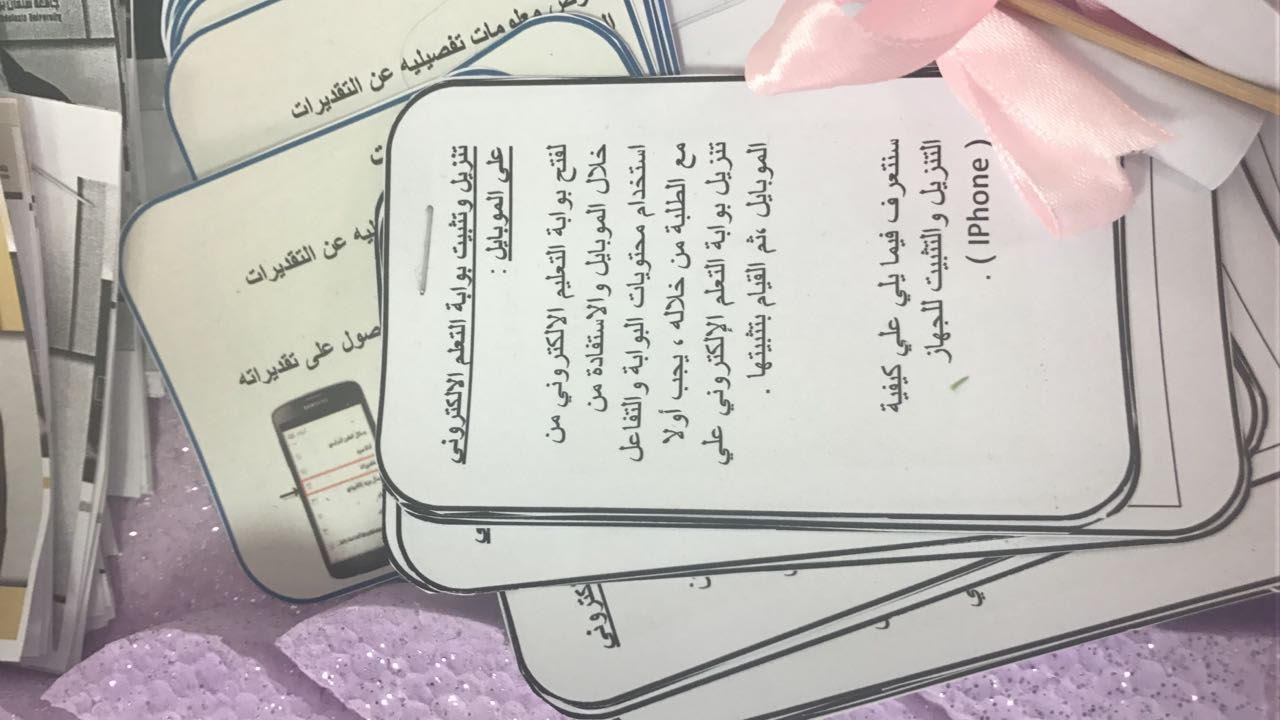 تنزيل وتثبيت بوابة التعلم الالكتروني
على الموبايل :
لفتح بوابة التعليم الالكتروني من
خلال الموبايل والاستفادة من
استخدام محتويات البوابة والتفاعل
مع الطلبة من خلاله ، يجب أولا
تنزيل بوابة التعلم الإلكتروني علي
الموبايل ،ثم القيام بتثبيتها .
سنتعرف فيما يلي علي كيفية
التنزيل والتثبيت للجهاز
( IPhone ) .
معلومات تفصيليه عن التقديرات
عن التقديرات
على تقديراته
SAMSUNG
University